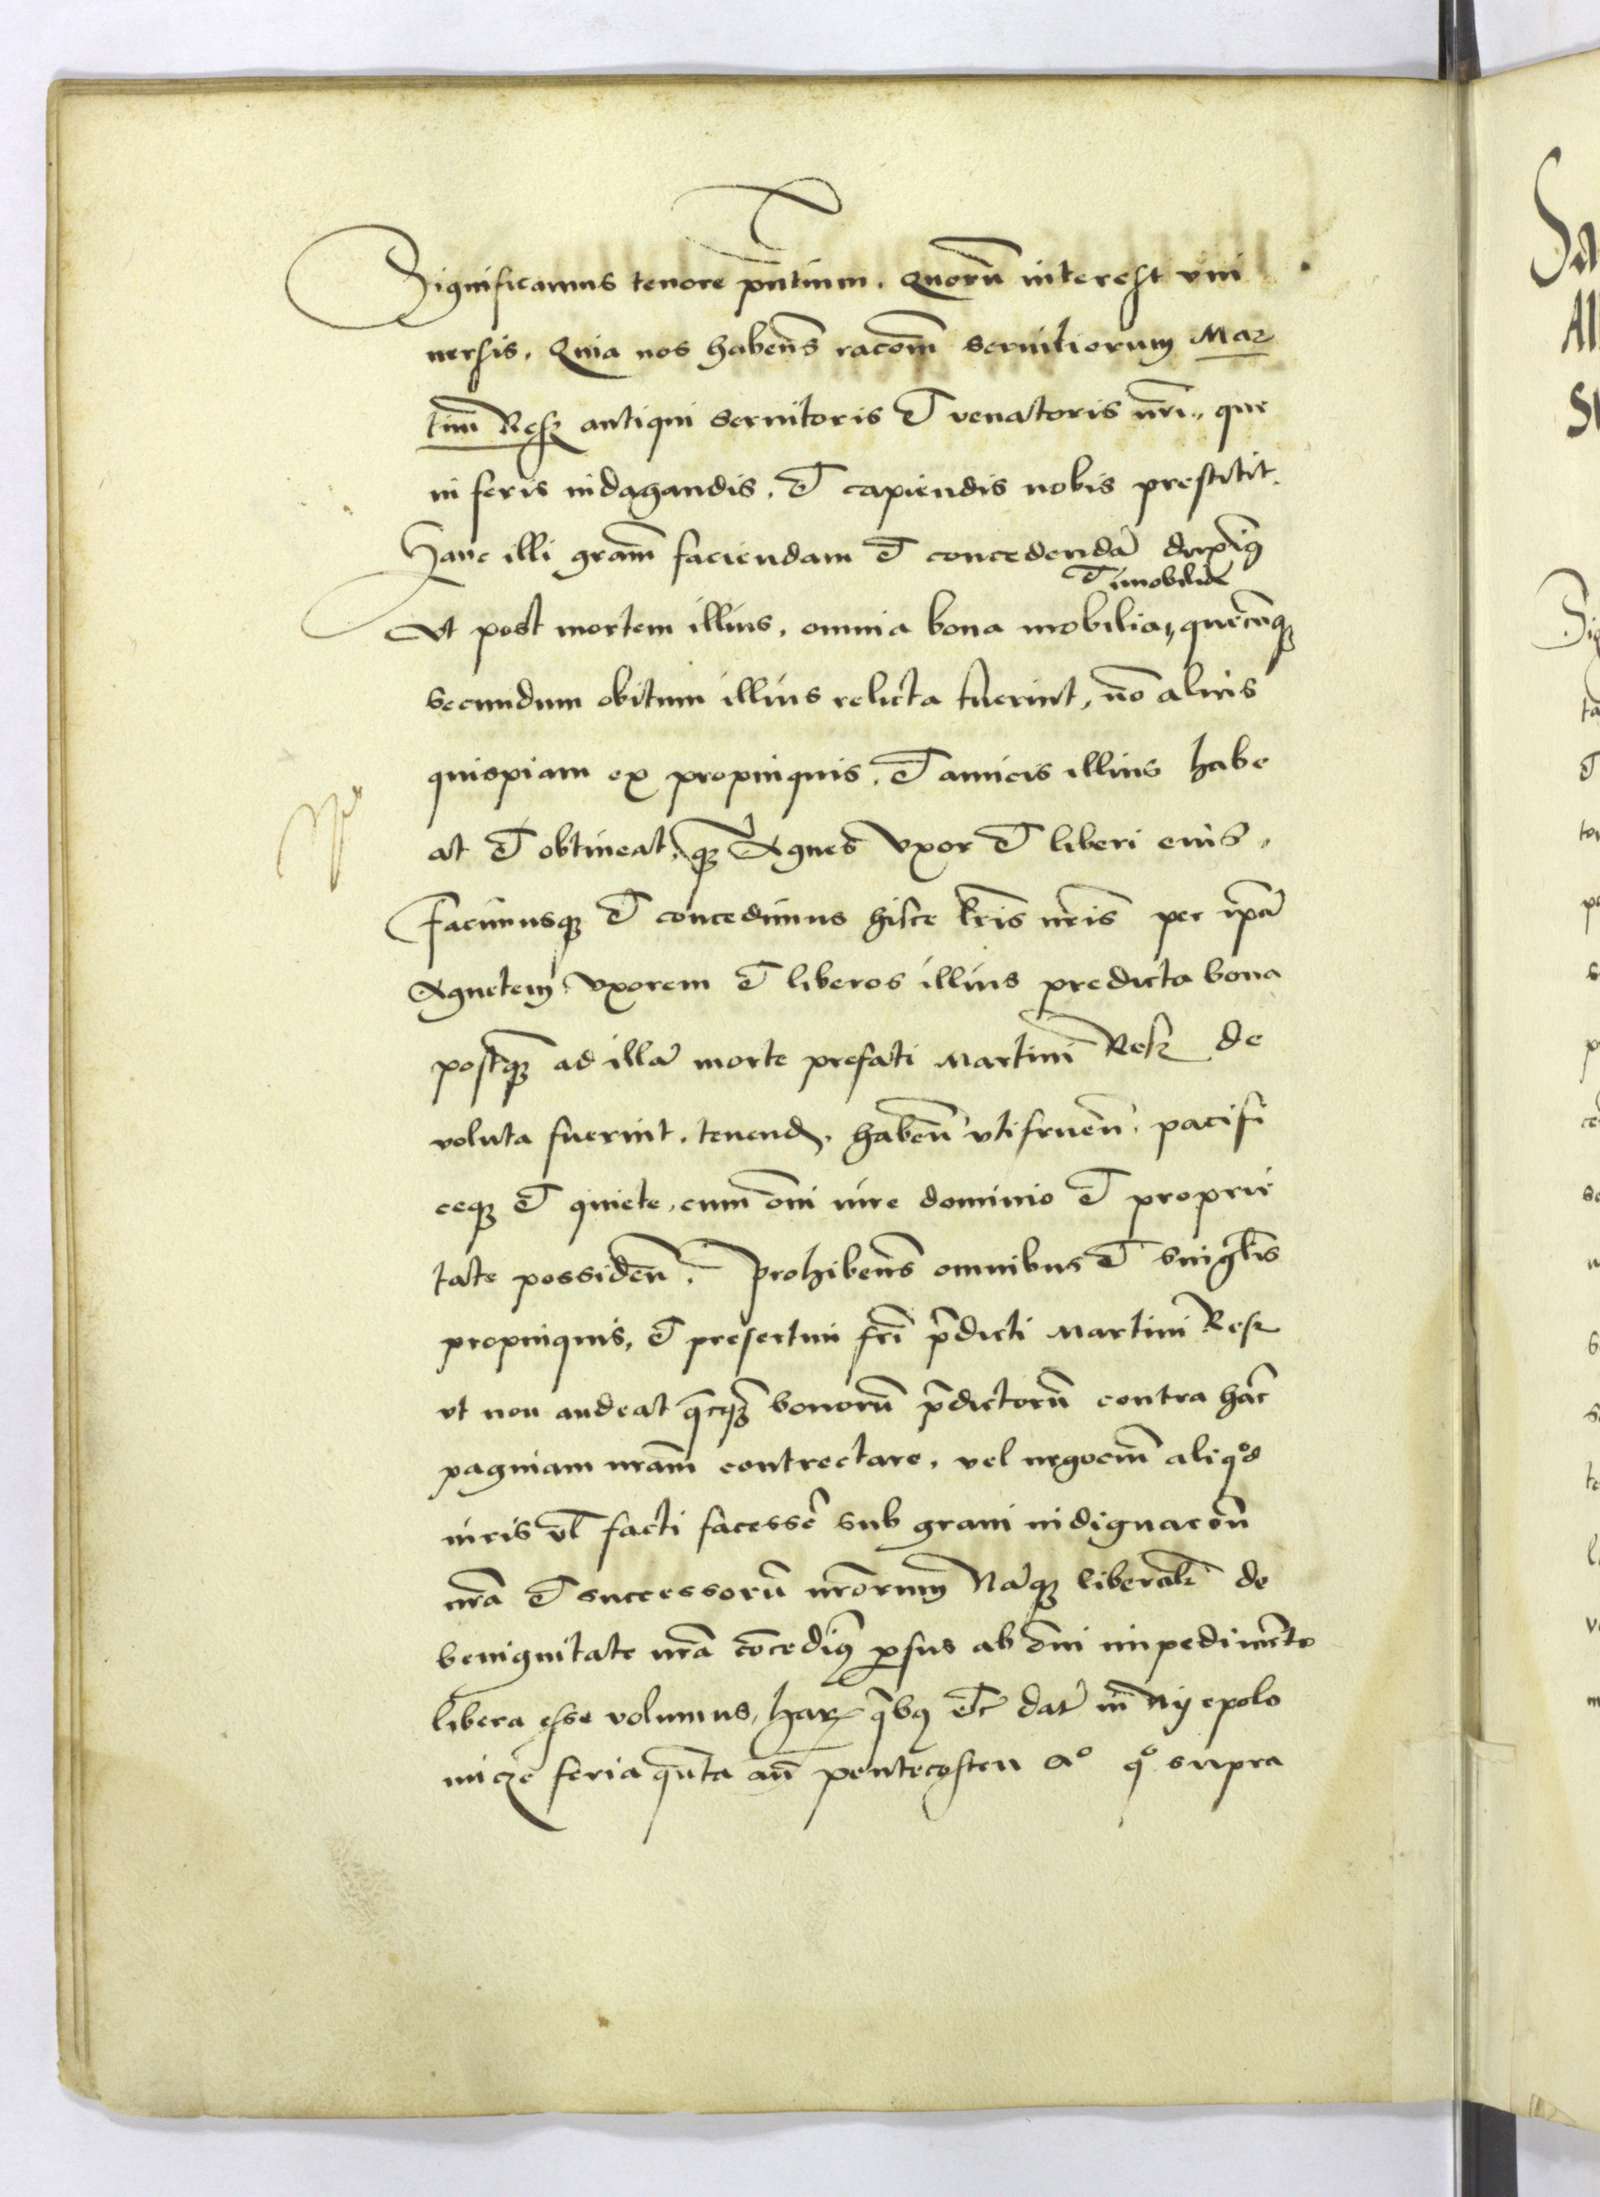 Significamus tenore pntium. Quorū interest vni
uersis. Quia nos habens̄ racōm̄ seruitiorum Mar
tini Resz antiqui seruitoris et venatoris nrī, que
in feris indagandis, et capiendis nobis prestitit.
Hanc illi gram̄ faciendam et concedendā duxim9
et imobilia
Vt post mortem illius, omnia bona mobilia, quecūq3
secundum obitum illius relicta fuerint, nō alius
quispiam ex propinquis, et amicis illius habe
at et obtineat, q3 Agnes vxor et liberi eius,
facimusq3 et concedimus hisce lrīs nrīs per ipā
Agnetem vxorem et liberos illius predicta bona
postq3 ad illā morte prefati Martini Resz de
voluta fuerint, tenend. haben̄ vtifruen̄. pacifi
ceq3 et quiete, cum om̄i iure dominio et proprie
tate possiden̄. Prohibens̄ omnibus et singlīs
propinquis, et presertim frī p̄dicti Martini Resz
vt non audeat bonorū p̄dictorū contra hāc
paginam nram̄ contrectare, vel negocium̄ aliqod
iuris vl̄ facti facesse sub graui indignacōn̄
nrā et successorū nrōrum Nāq3 de
benignitate nrā cōcedim9 psus ab om̄i impedimēto
libera esse volumus, har q̄b9 etc̄ dat in Nyepolo
micze feria qunta an̄ pentecosten a° q° supra